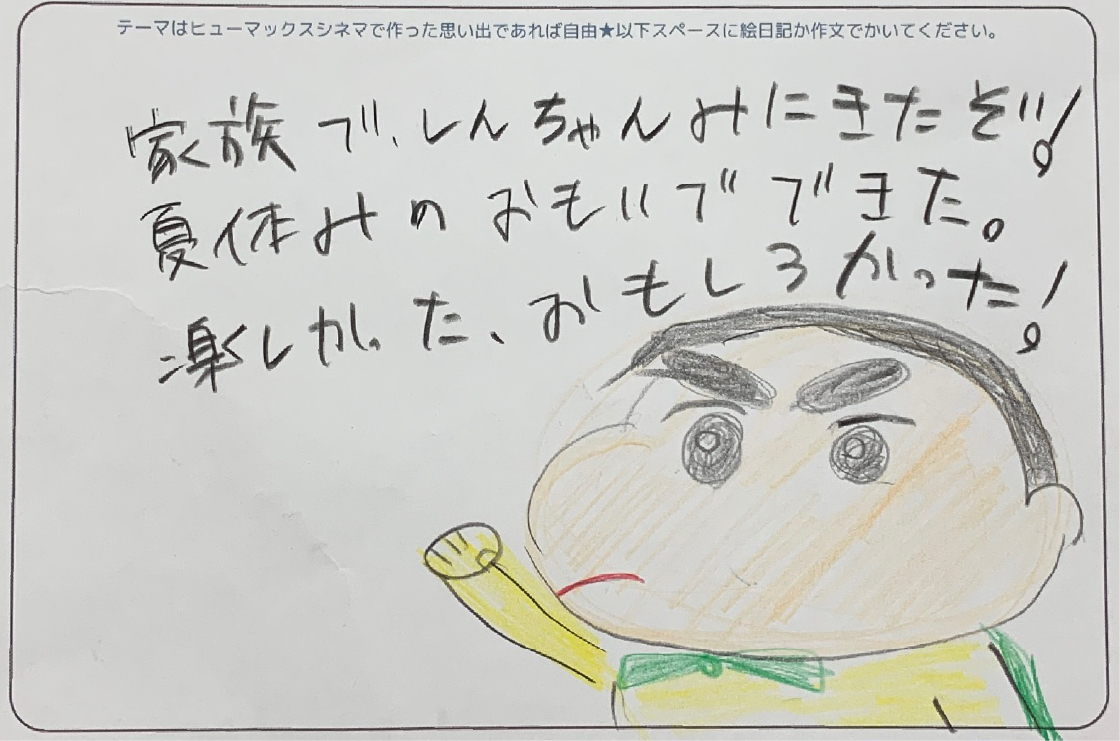 テーマはヒューマックスシネマで作った思い出であれば自由★以下スペースに絵日記か作文でかいてください。
家族で、しんちゃんみにきたぞ!
夏休みのおもいでできた。
楽しかった、おもしろかった!